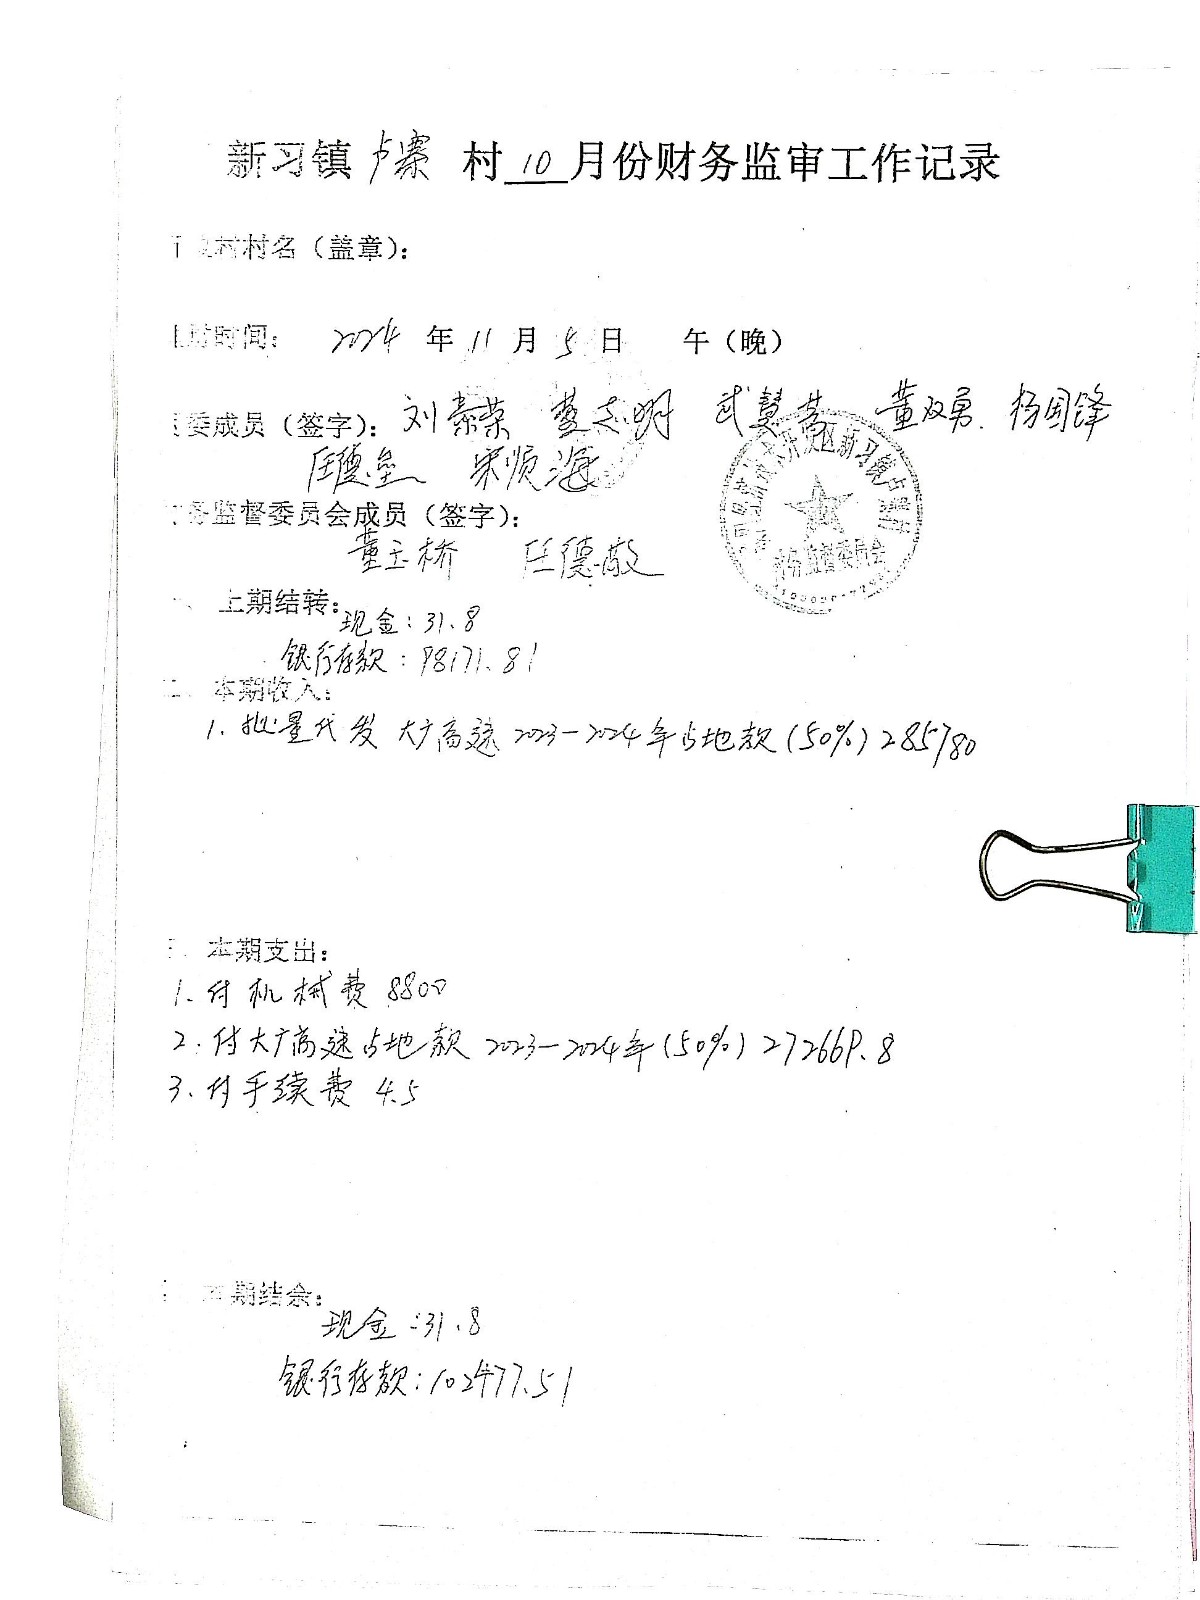 新习镇卢寨 村 10 月份财务监审工作记录
村村名（盖章）：
时间： 2024 年 11 月 5 日 午（晚）
委成员（签字）： 刘素荣 志明 武慧 董双勇 杨国锋
任德 宋顺海
务监督委员会成员（签字）：
董玉桥 任德敬
新习镇 村务监督委员会
上期结转：
现金：31.8
银行存款：98171.81
二、本期收入：
1. 批量代发 大广高速 2023-2024年占地款(50%) 285780
本期支出：
1. 付机械费 8800
2. 付大广高速占地款 2023-2024年(50%) 272669.8
3. 付手续费 4.5
本期结余：
现金：31.8
银行存款：102477.51